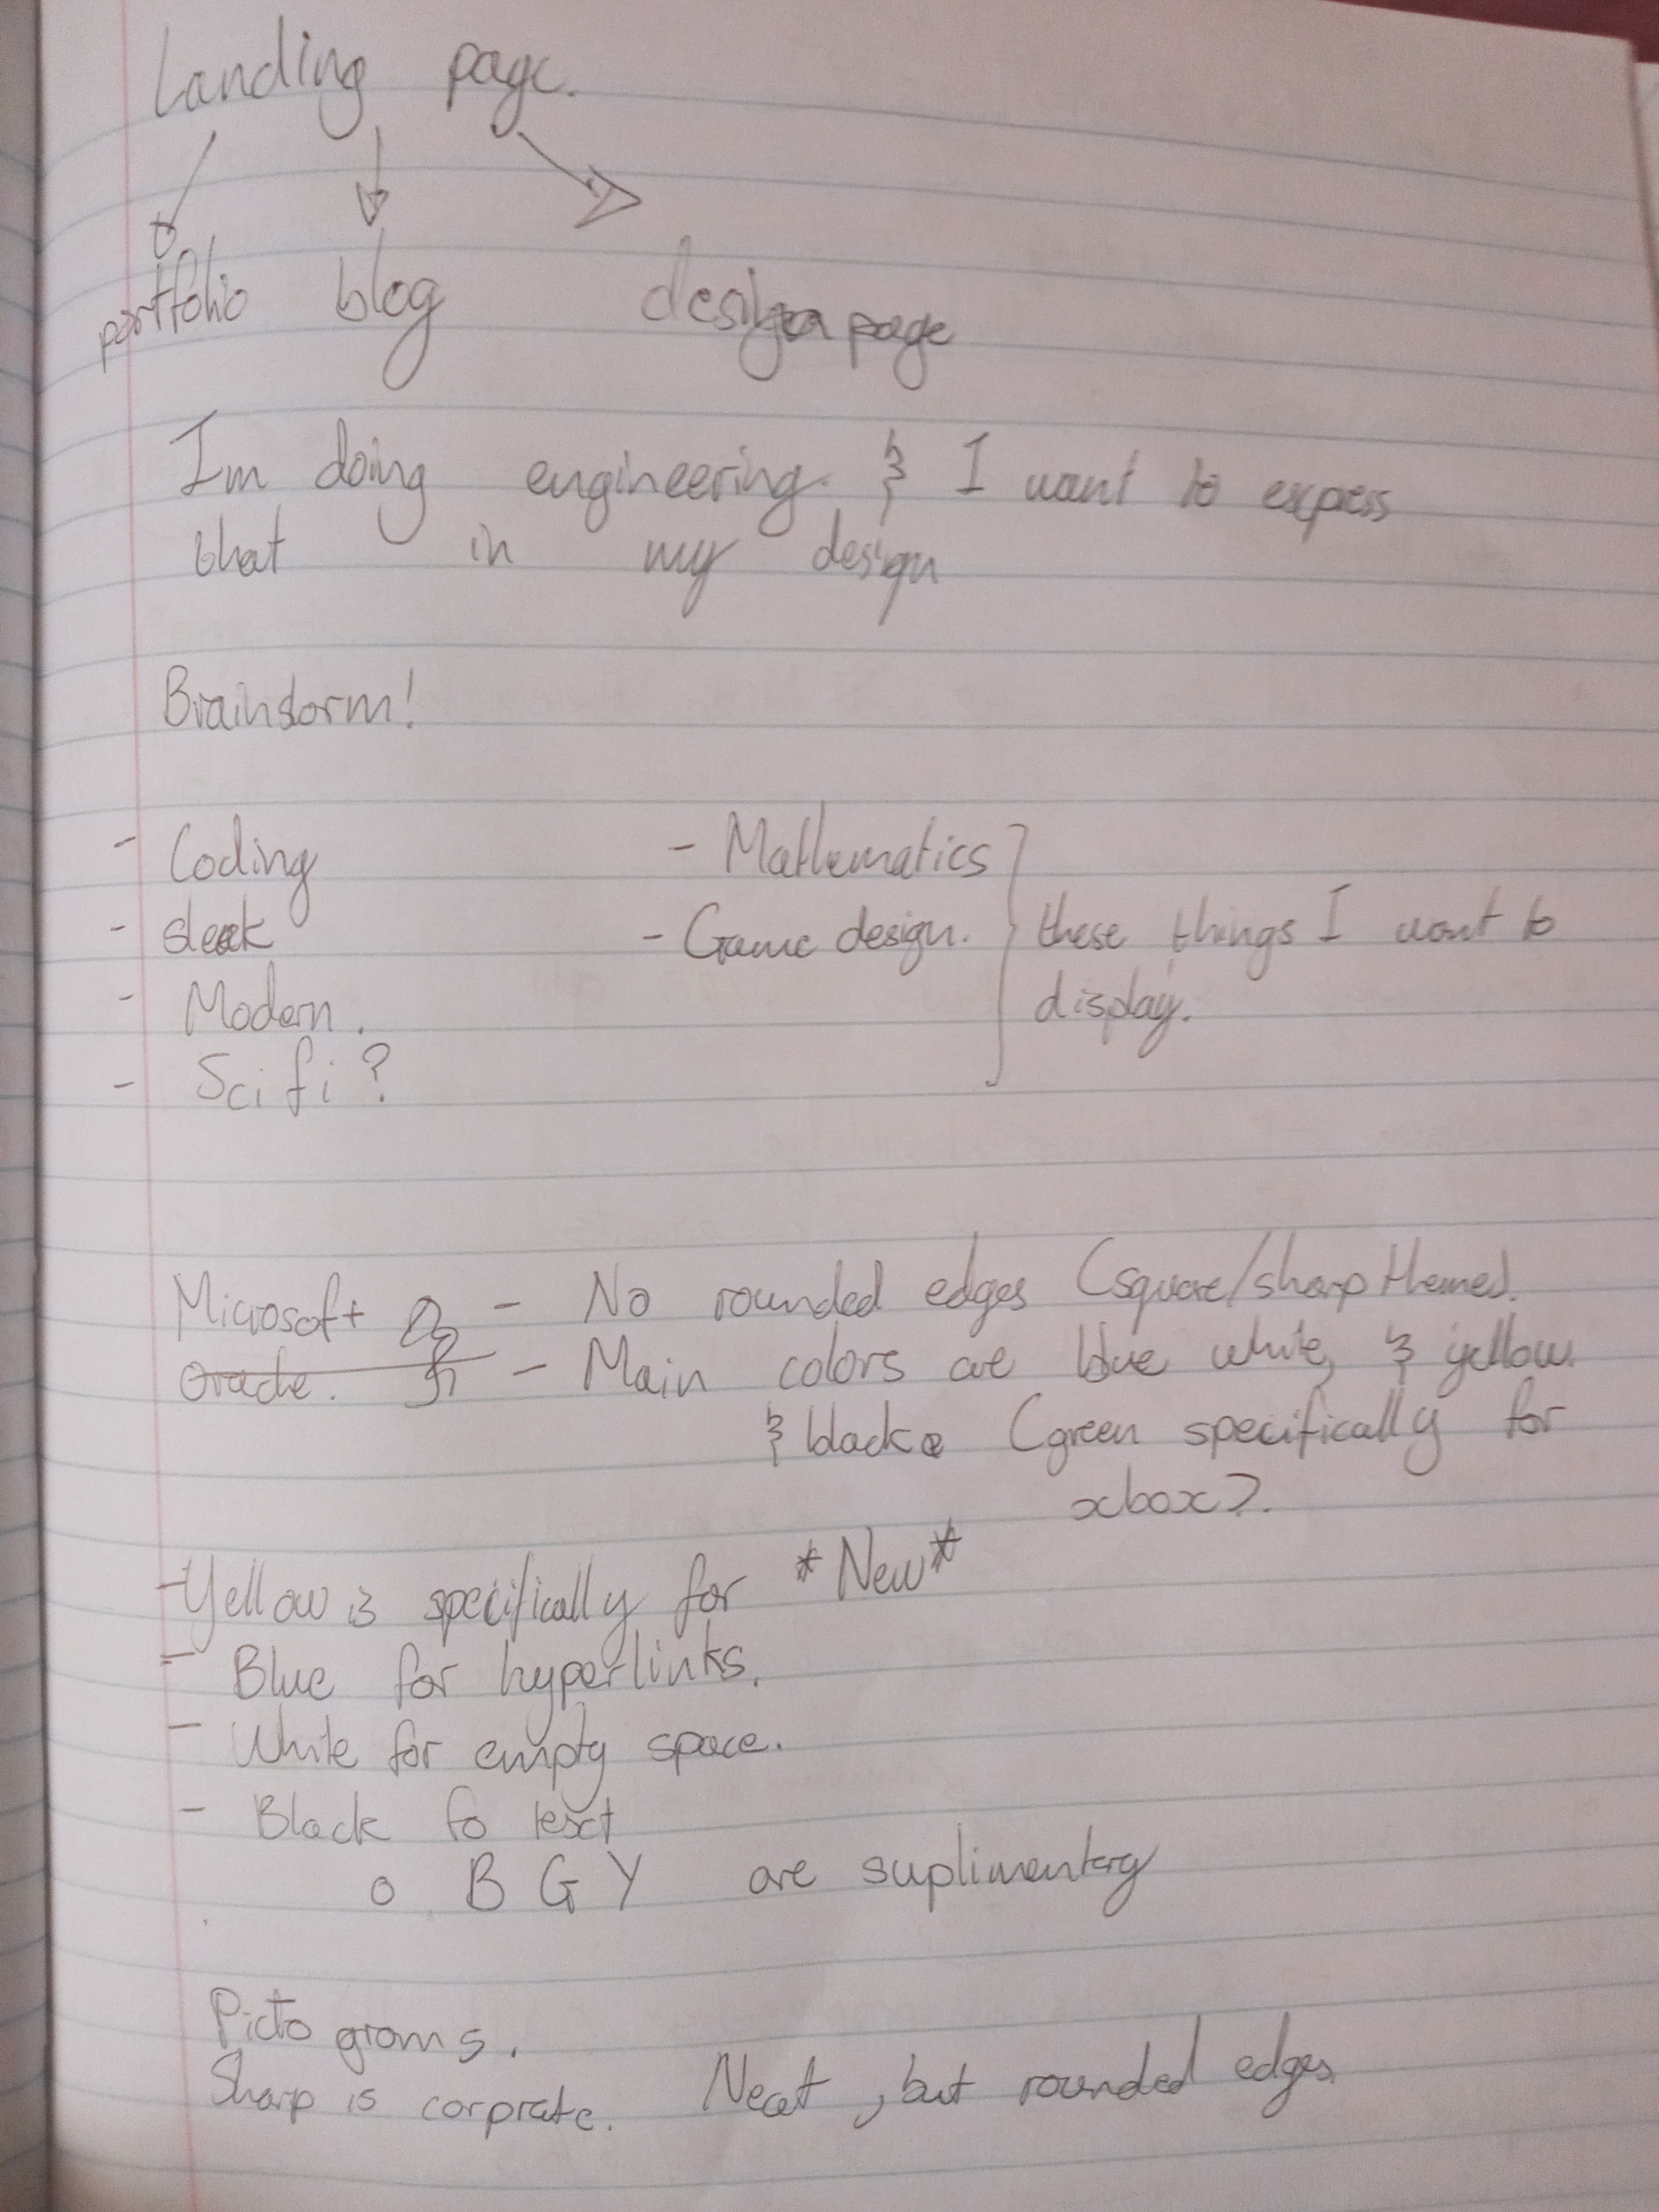 Landing page.
portfolio blog design page
I'm doing engineering. & I want to express
that in my design
Brainstorm!
- Coding - Mathematics
- sleek - Game design. these things I want to
- Modern. display.
- Sci fi ?
Microsoft - No rounded edges (square/sharp themes).
oracle. - Main colors are blue white, & yellow.
& black. (green specifically for
xbox).
- Yellow is specifically for *New*
- Blue for hyperlinks.
- White for empty space.
- Black fo text
o B G Y are suplimentary
Picto grams.
Sharp is corprate. Neat, but rounded edges.